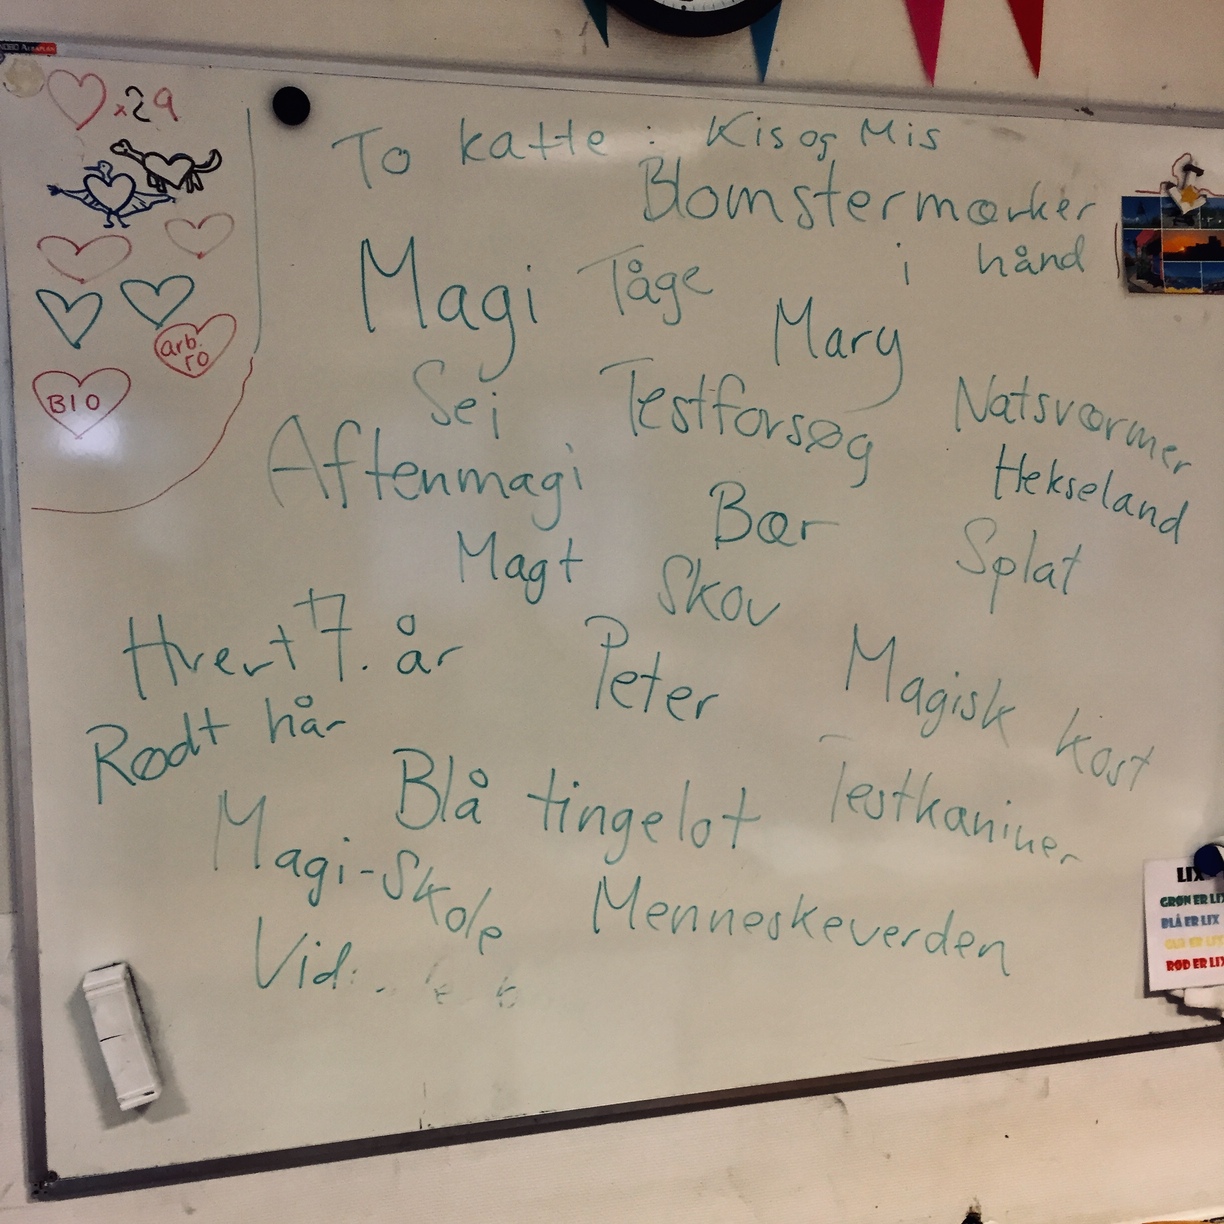 x29
To katte : Kis og Mis
Blomstermærker
i hånd
Magi
Tåge
Mary
arb.
ro
BIO
Sei
Testforsøg
Natsværmer
Aftenmagi
Hekseland
Bær
Magt
Splat
Skov
Hvert 7. år
Peter
Magisk kost
Rødt hår
Blå tingelot
Testkaniner
Magi-Skole
Menneskeverden
LIX
GRØN ER LIX
BLÅ ER LIX
GUL ER LIX
RØD ER LIX